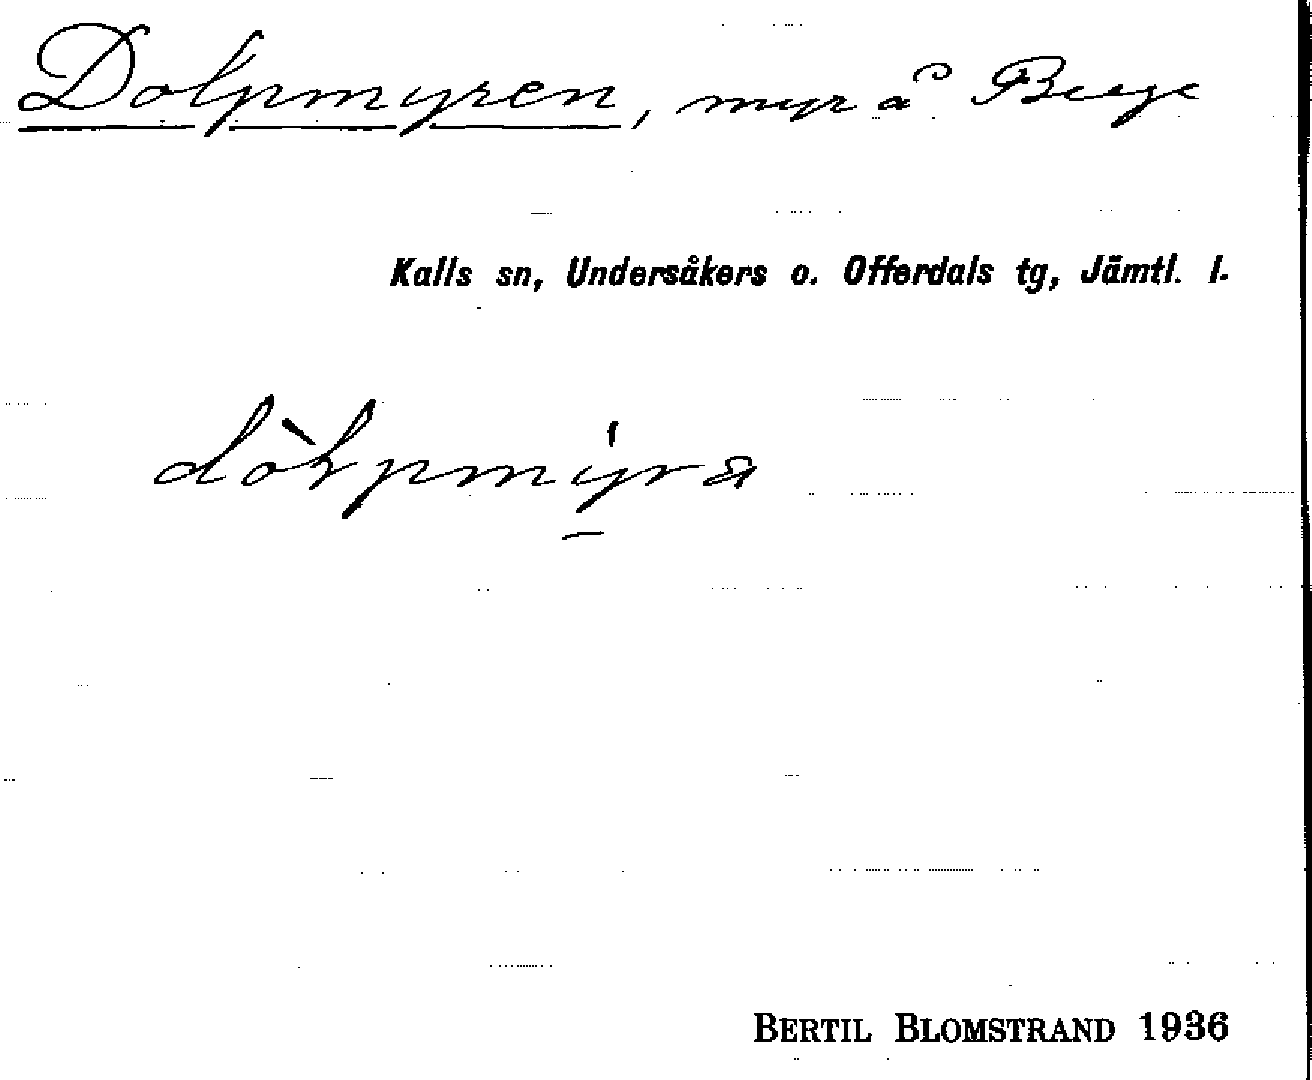 Dolpmyren, myr å Berge
Kalls sn, Undersåkers o. Offerdals tg, Jämtl. l.
BERTIL BLOMSTRAND 1936